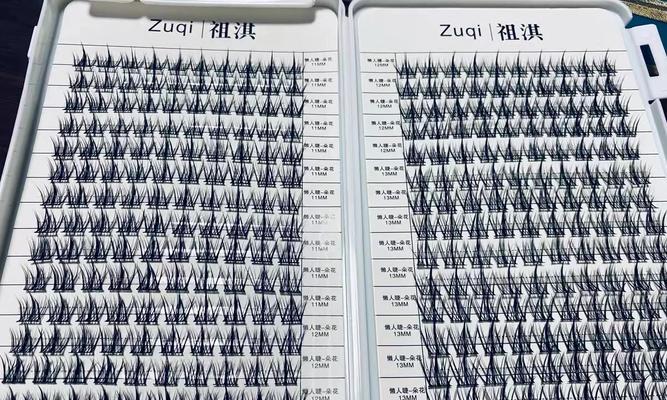 Zuqi | 祖淇
懒人睫-朵花
11MM
懒人睫-朵花
11MM
懒人睫-朵花
11MM
懒人睫-朵花
11MM
懒人睫-朵花
11MM
懒人睫-朵花
11MM
懒人睫-朵花
11MM
懒人睫-朵花
11MM
懒人睫-朵花
11MM
懒人睫-朵花
11MM
懒人睫-朵花
11MM
懒人睫-朵花
12MM
懒人睫-朵花
12MM
懒人睫-朵花
12MM
Zuqi | 祖淇
懒人睫-朵花
12MM
懒人睫-朵花
12MM
懒人睫-朵花
12MM
懒人睫-朵花
12MM
懒人睫-朵花
12MM
懒人睫-朵花
13MM
懒人睫-朵花
13MM
懒人睫-朵花
13MM
懒人睫-朵花
13MM
懒人睫-朵花
13MM
懒人睫-朵花
13MM
懒人睫-朵花
13MM
懒人睫-朵花
13MM
懒人睫-朵花
13MM